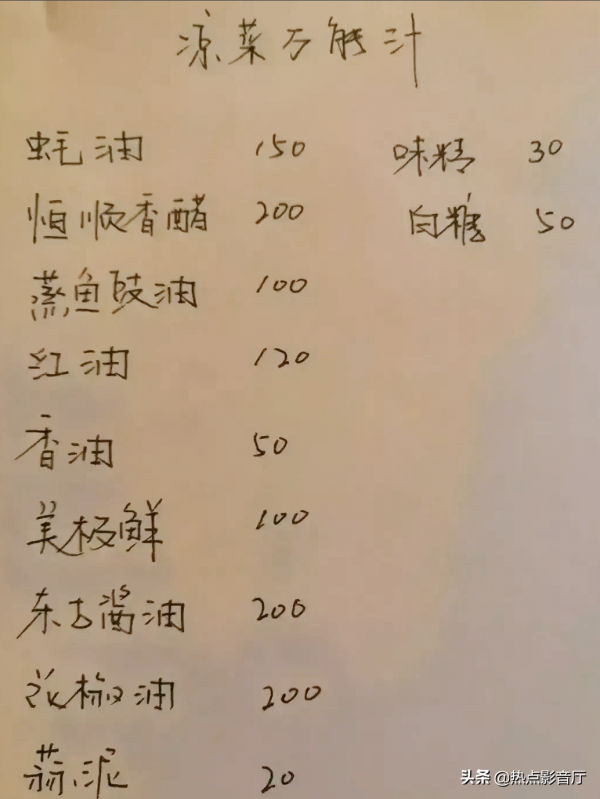 凉菜万能汁
蚝油 150
恒顺香醋 200
蒸鱼豉油 100
红油 120
香油 50
美极鲜 100
东古酱油 200
花椒油 200
蒜泥 20
味精 30
白糖 50
头条 @热点影音厅